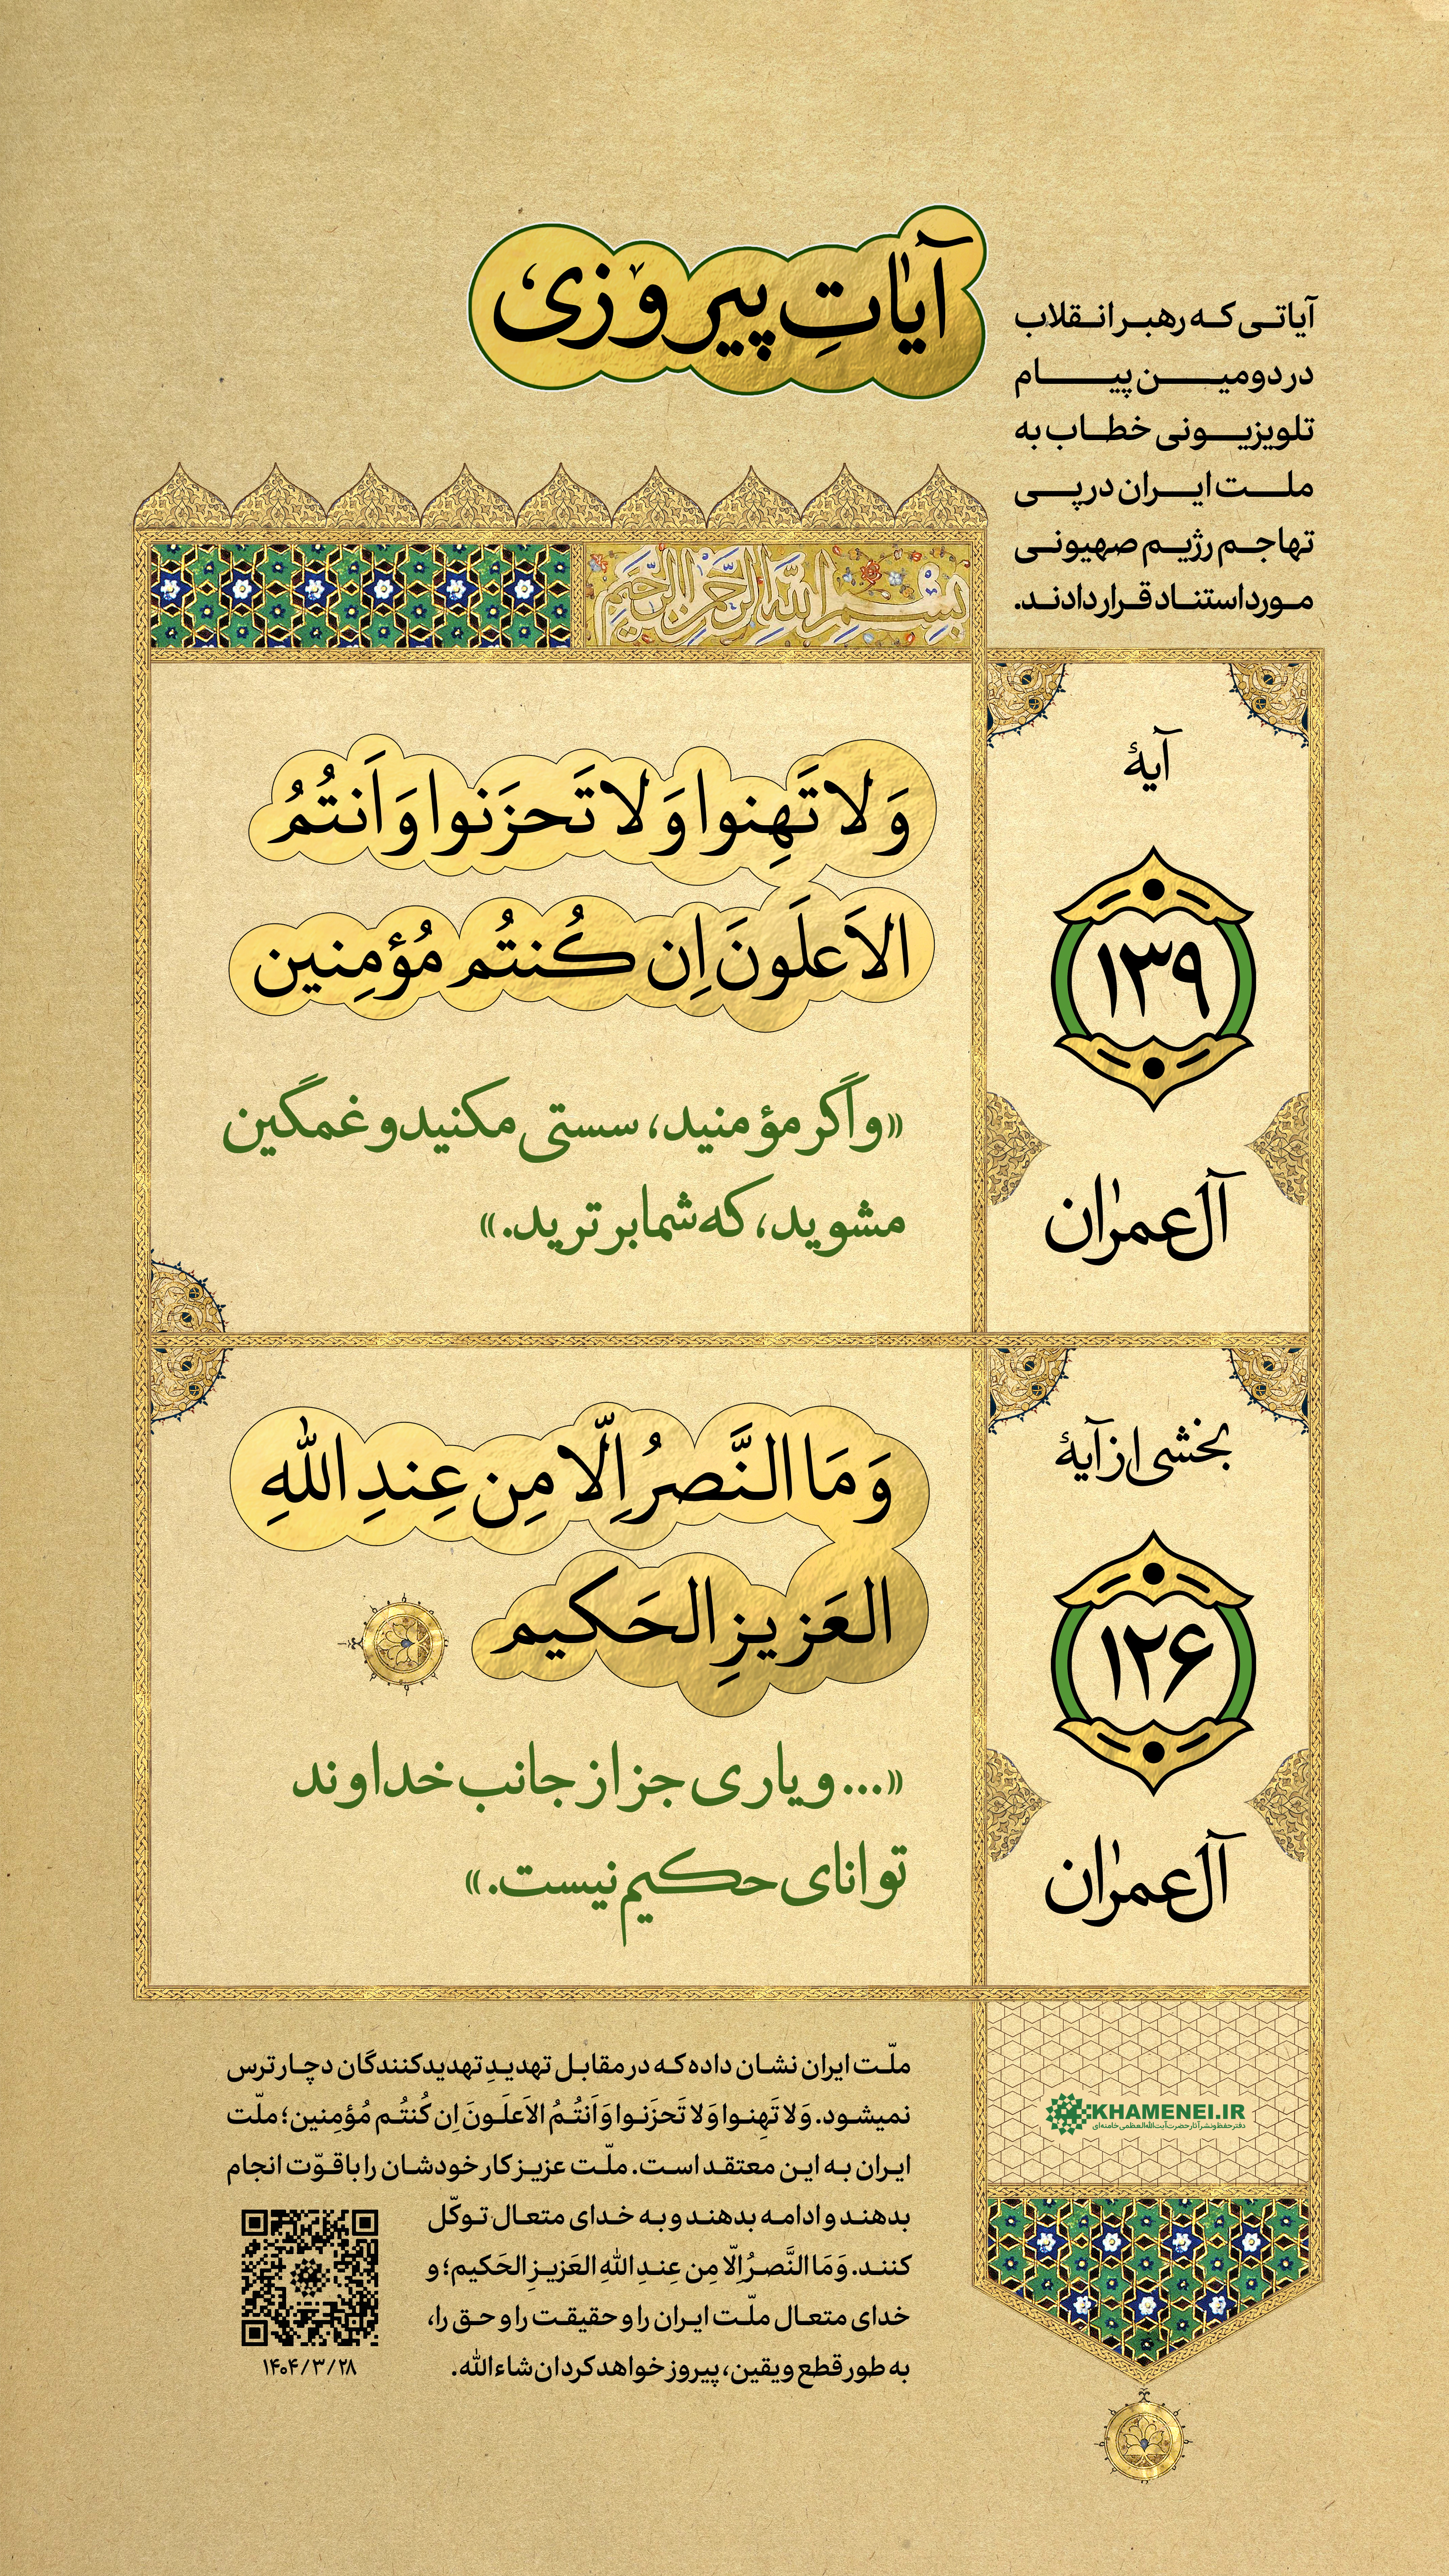 آیاتِ پیروزی
آیاتی که رهبر انقلاب
در دومین پیام
تلویزیونی خطاب به
ملت ایران در پی
تهاجم رژیم صهیونی
مورد استناد قرار دادند.
بِسْمِ اللَّهِ الرَّحْمٰنِ الرَّحِيمِ
آیهٔ
۱۳۹
آل‌عمران
وَ لا تَهِنوا وَ لا تَحزَنوا وَ اَنتُمُ
الاَعلَونَ اِن کُنتُم مُؤمِنین
«و اگر مؤمنید، سستی مکنید و غمگین
مشوید، که شما برترید.»
بخشی از آیهٔ
۱۲۶
آل‌عمران
وَ مَا النَّصرُ اِلّا مِن عِندِ اللهِ
العَزیزِ الحَکیم
«... و یاری جز از جانب خداوند
توانای حکیم نیست.»
ملّت ایران نشان داده که در مقابل تهدیدِ تهدیدکنندگان دچار ترس
نمیشود. وَ لا تَهِنوا وَ لا تَحزَنوا وَ اَنتُمُ الاَعلَونَ اِن کُنتُم مُؤمِنین؛ ملّت
ایران به این معتقد است. ملّت عزیز کار خودشان را با قوّت انجام
بدهند و ادامه بدهند و به خدای متعال توکّل
کنند. وَ مَا النَّصرُ اِلّا مِن عِندِ اللهِ العَزیزِ الحَکیم؛ و
خدای متعال ملّت ایران را و حقیقت را و حق را،
به طور قطع و یقین، پیروز خواهد کرد ان‌شاءالله.
۱۴۰۴/۳/۲۸
KHAMENEI.IR
دفتر حفظ و نشر آثار حضرت آیت‌الله‌العظمی خامنه‌ای